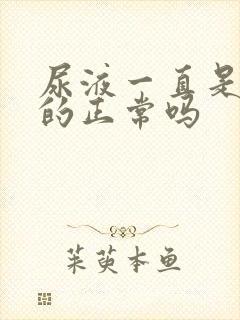 尿液一直是
的正常吗
茱萸本鱼